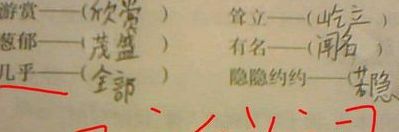 游赏——(欣赏) 耸立——(屹立)
葱郁——(茂盛) 有名——(闻名)
几乎——(全部) 隐隐约约——(若隐